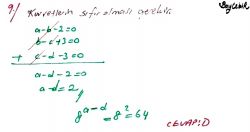 9/ Kuvvetlerin sıfır olmalı
a-b-2=0
b-c+3=0
+ c-d-3=0
a-d-2=0
a-d=2
8^{a-d}=8^2=64
CEVAP:D